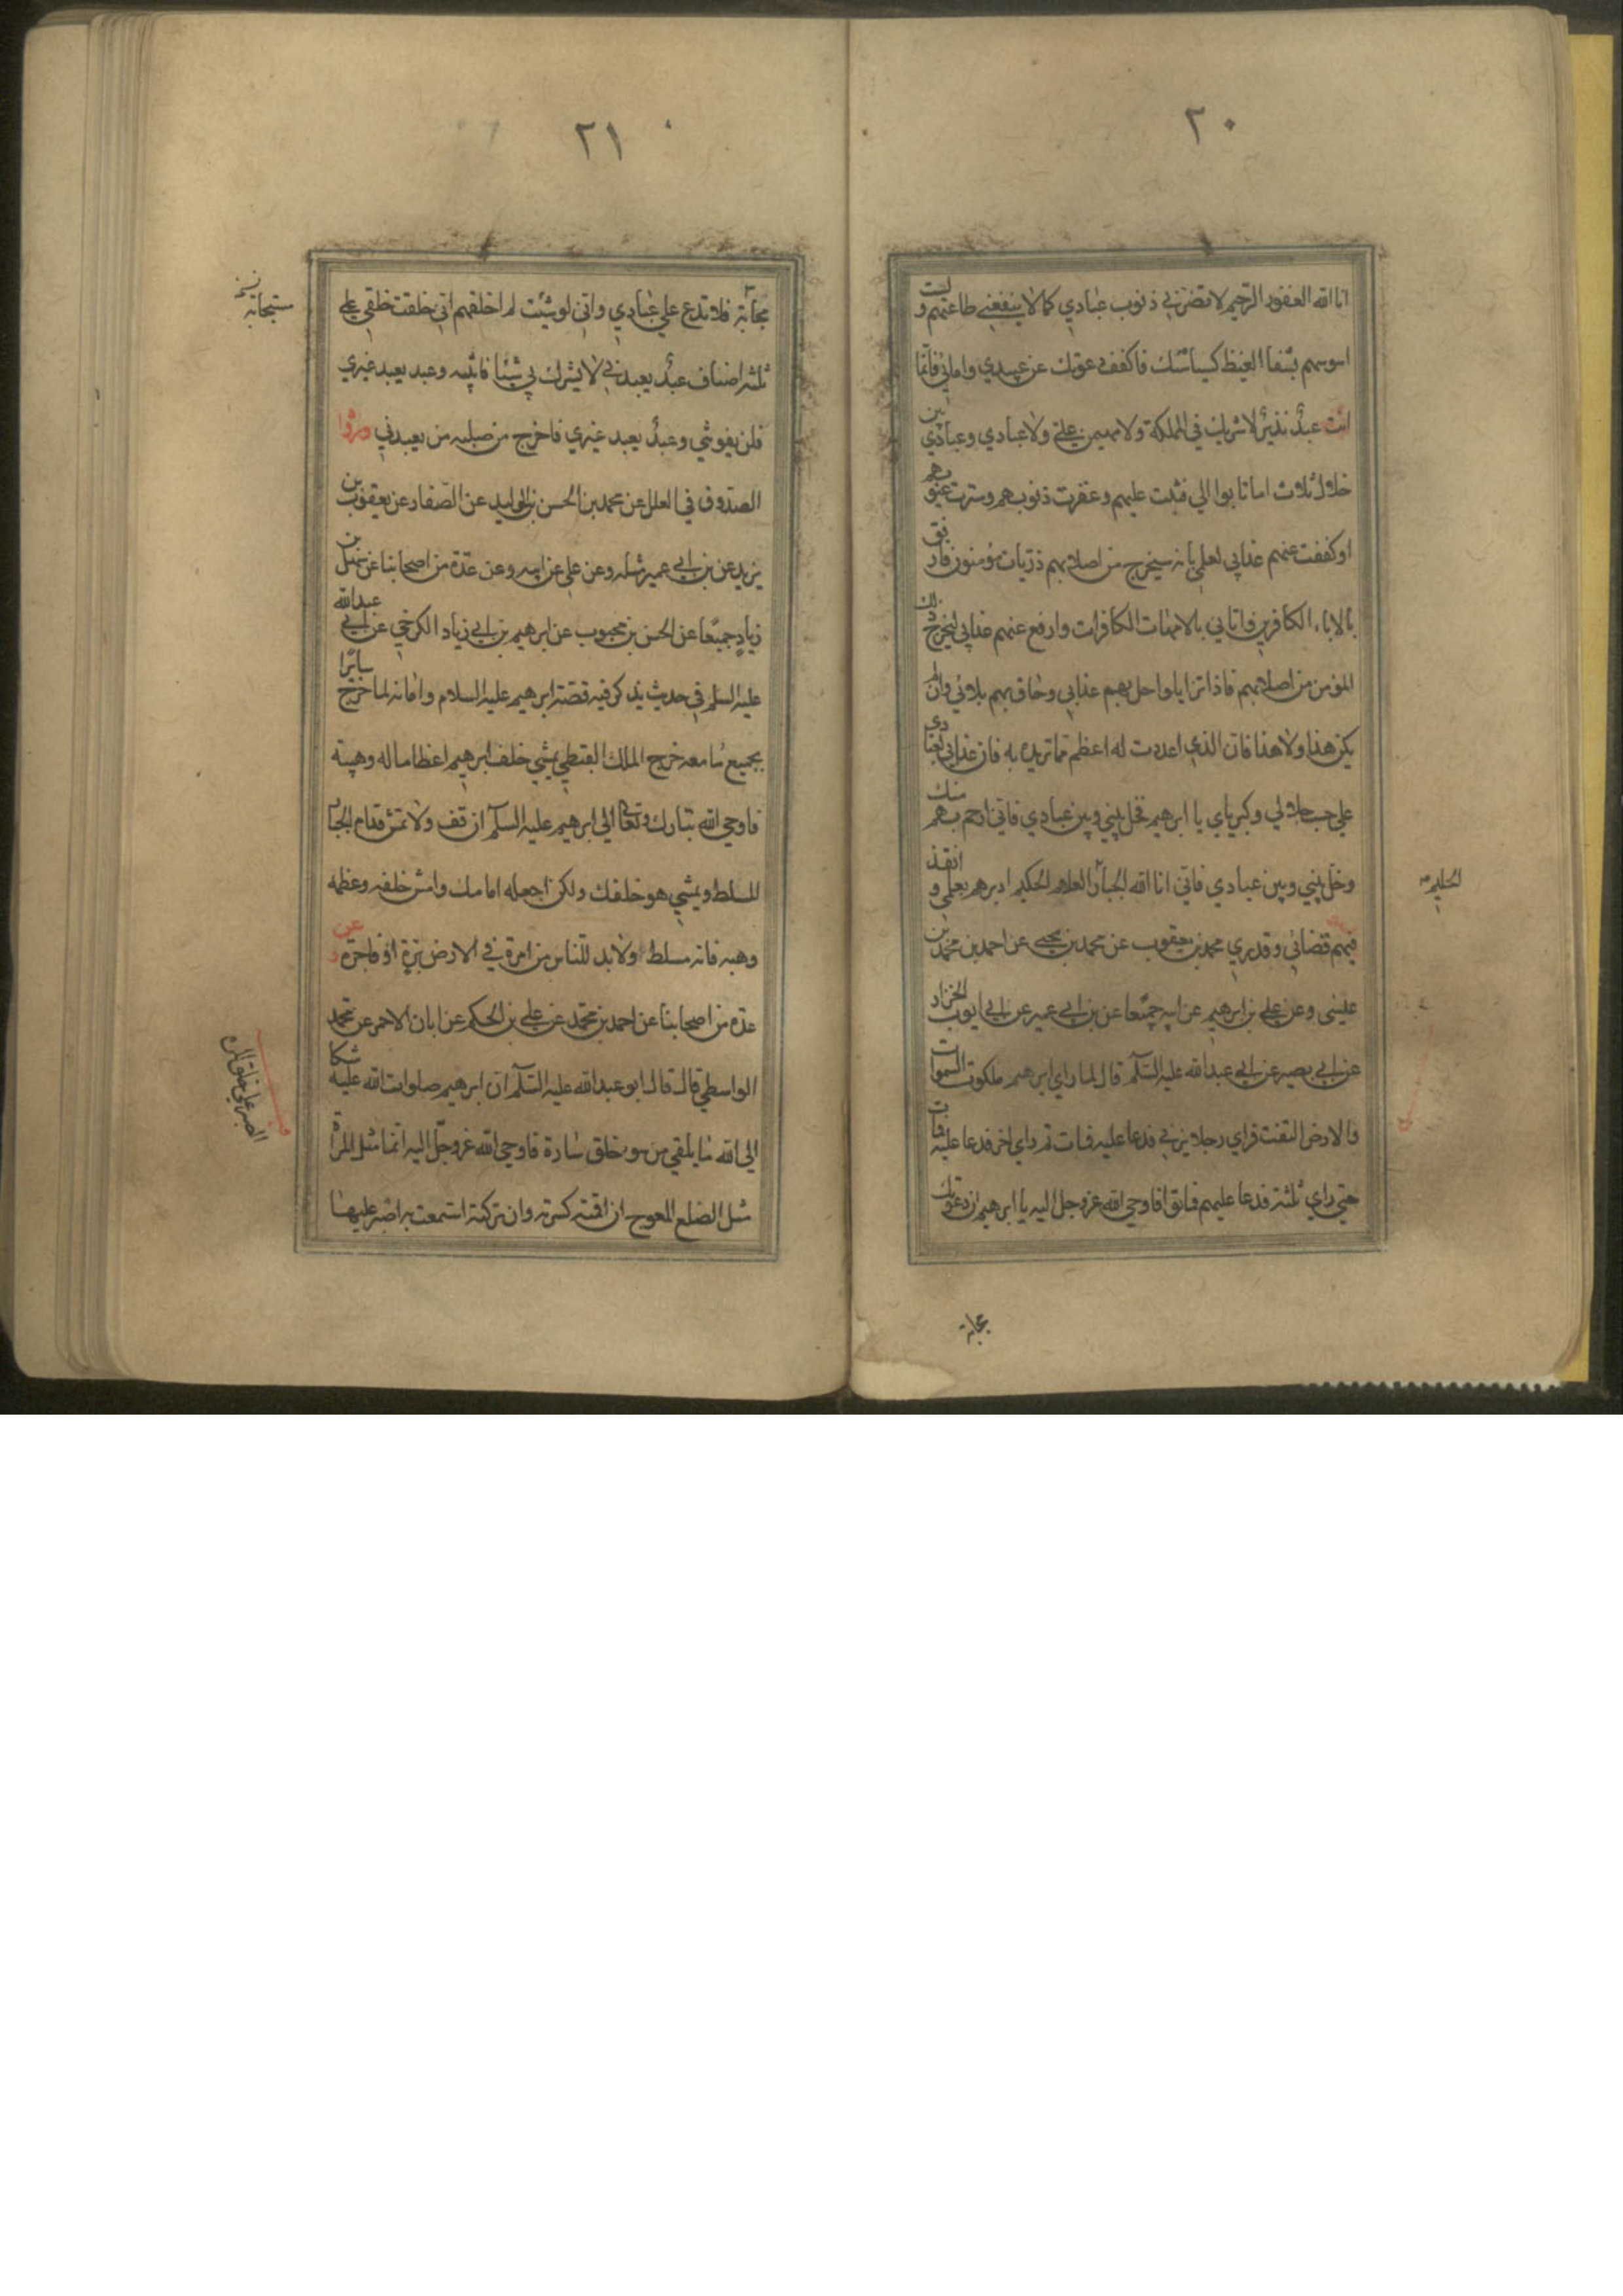 ٢٠
انا الله الغفور الرحيم لا تضرني ذنوب عبادي كما لا ينفعني طاعتهم و لست
اسوسهم بشفاء الغيظ كسياستك فاكفف دعوتك عن عبيدي وامائي فانما
انت عبد نذير لا شريك في المملكة ولا مهيمن علي ولا عبادي وعبادي بين
خلال ثلاث اما تابوا الي فتبت عليهم وغفرت ذنوبهم وسترت عيوبهم
او كففت عنهم عذابي لعلمي بانه سيخرج من اصلابهم ذريات مؤمنون فارفق
بالاباء الكافرين واتاني بالامهات الكافرات وارفع عنهم عذابي ليخرج ذلك
المؤمن من اصلابهم فاذا تزايلوا حل بهم عذابي وحاق بهم بلائي وان لم
يكن هذا ولا هذا فان الذي اعددت له اعظم مما تريده به فان عذابي لعبادي
علي حسب جلالي وكبريائي يا ابرهيم فخل بيني وبين عبادي فاني ارحم بهم منك
وخل بيني وبين عبادي فاني انا الله الجبار العلام الحكيم ادبرهم بعلمي و انفذ
فيهم قضائي وقدري محمد بن يعقوب عن محمد بن يحيى عن احمد بن محمد بن
عيسى وعن علي بن ابرهيم عن ابيه جميعا عن بن ابي عمير عن ابي ايوب الخزاز
عن ابي بصير عن ابي عبد الله عليه السلام قال لما راي ابرهيم ملكوت السموات
والارض التفت فراي رجلا يزني فدعا عليه فمات ثم راي اخر فدعا عليه فمات
حتي راي ثلثة فدعا عليهم فماتوا فاوحي الله عز وجل اليه يا ابرهيم ان دعوتك
مجابة
الحليم
٢١
مجابة فلا تدع علي عبادي واني لو شئت لم اخلقهم اني خلقت خلقي علي
ثلثة اصناف عبد يعبدني لا يشرك بي شيئا فاثيبه وعبد يعبد غيري
فلن يفوتني وعبد يعبد غيري فاخرج من صلبه من يعبدني
الصدوق في العلل عن محمد بن الحسن بن الوليد عن الصفار عن يعقوب بن
يزيد عن بن ابي عمير مثله وعن علي عن ابيه وعن عدة من اصحابنا عن سهل بن
زياد جميعا عن الحسن بن محبوب عن ابرهيم بن ابي زياد الكرخي عن ابي عبد الله
عليه السلم في حديث يذكر فيه قصة ابرهيم عليه السلام وامانه لما خرج سايرا
بجميع ما معه خرج الملك القبطي يمشي خلف ابرهيم اعظاما له وهيبة
فاوحي الله تبارك وتعالي الي ابرهيم عليه السلم ان قف ولا تمش قدام الجبار
المسلط ويمشي هو خلفك ولكن اجعله امامك وامش خلفه وعظمه
وهبه فانه مسلط ولا بد للناس من امرة في الارض برة او فاجرة عن
عدة من اصحابنا عن احمد بن محمد عن علي بن الحكم عن ابان الاحمر عن محمد
الواسطي قال قال ابو عبد الله عليه السلم ان ابرهيم صلوات الله عليه شكا
الي الله ما يلقي من سوء خلق سارة فاوحي الله عز وجل اليه انما مثل المراة
مثل الضلع المعوج ان اقمته كسرته وان تركته استمتعت به اصبر عليها
مستجابة
الصبر علي خلق المراة